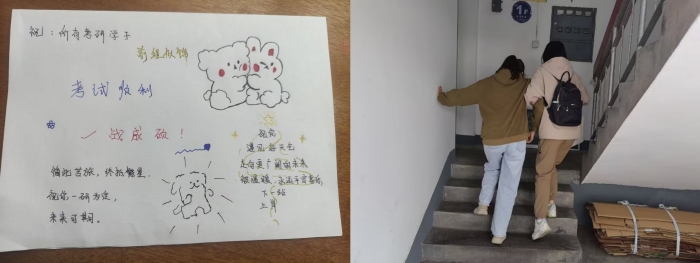 祝：所有考研学子
前程似锦
考试顺利
一战成硕！
此苦旅，终抵繁星
祝你一研为定，
未来可期。
祝你
遇见
走向更广阔的未来
永远
下一站
上岸
1F